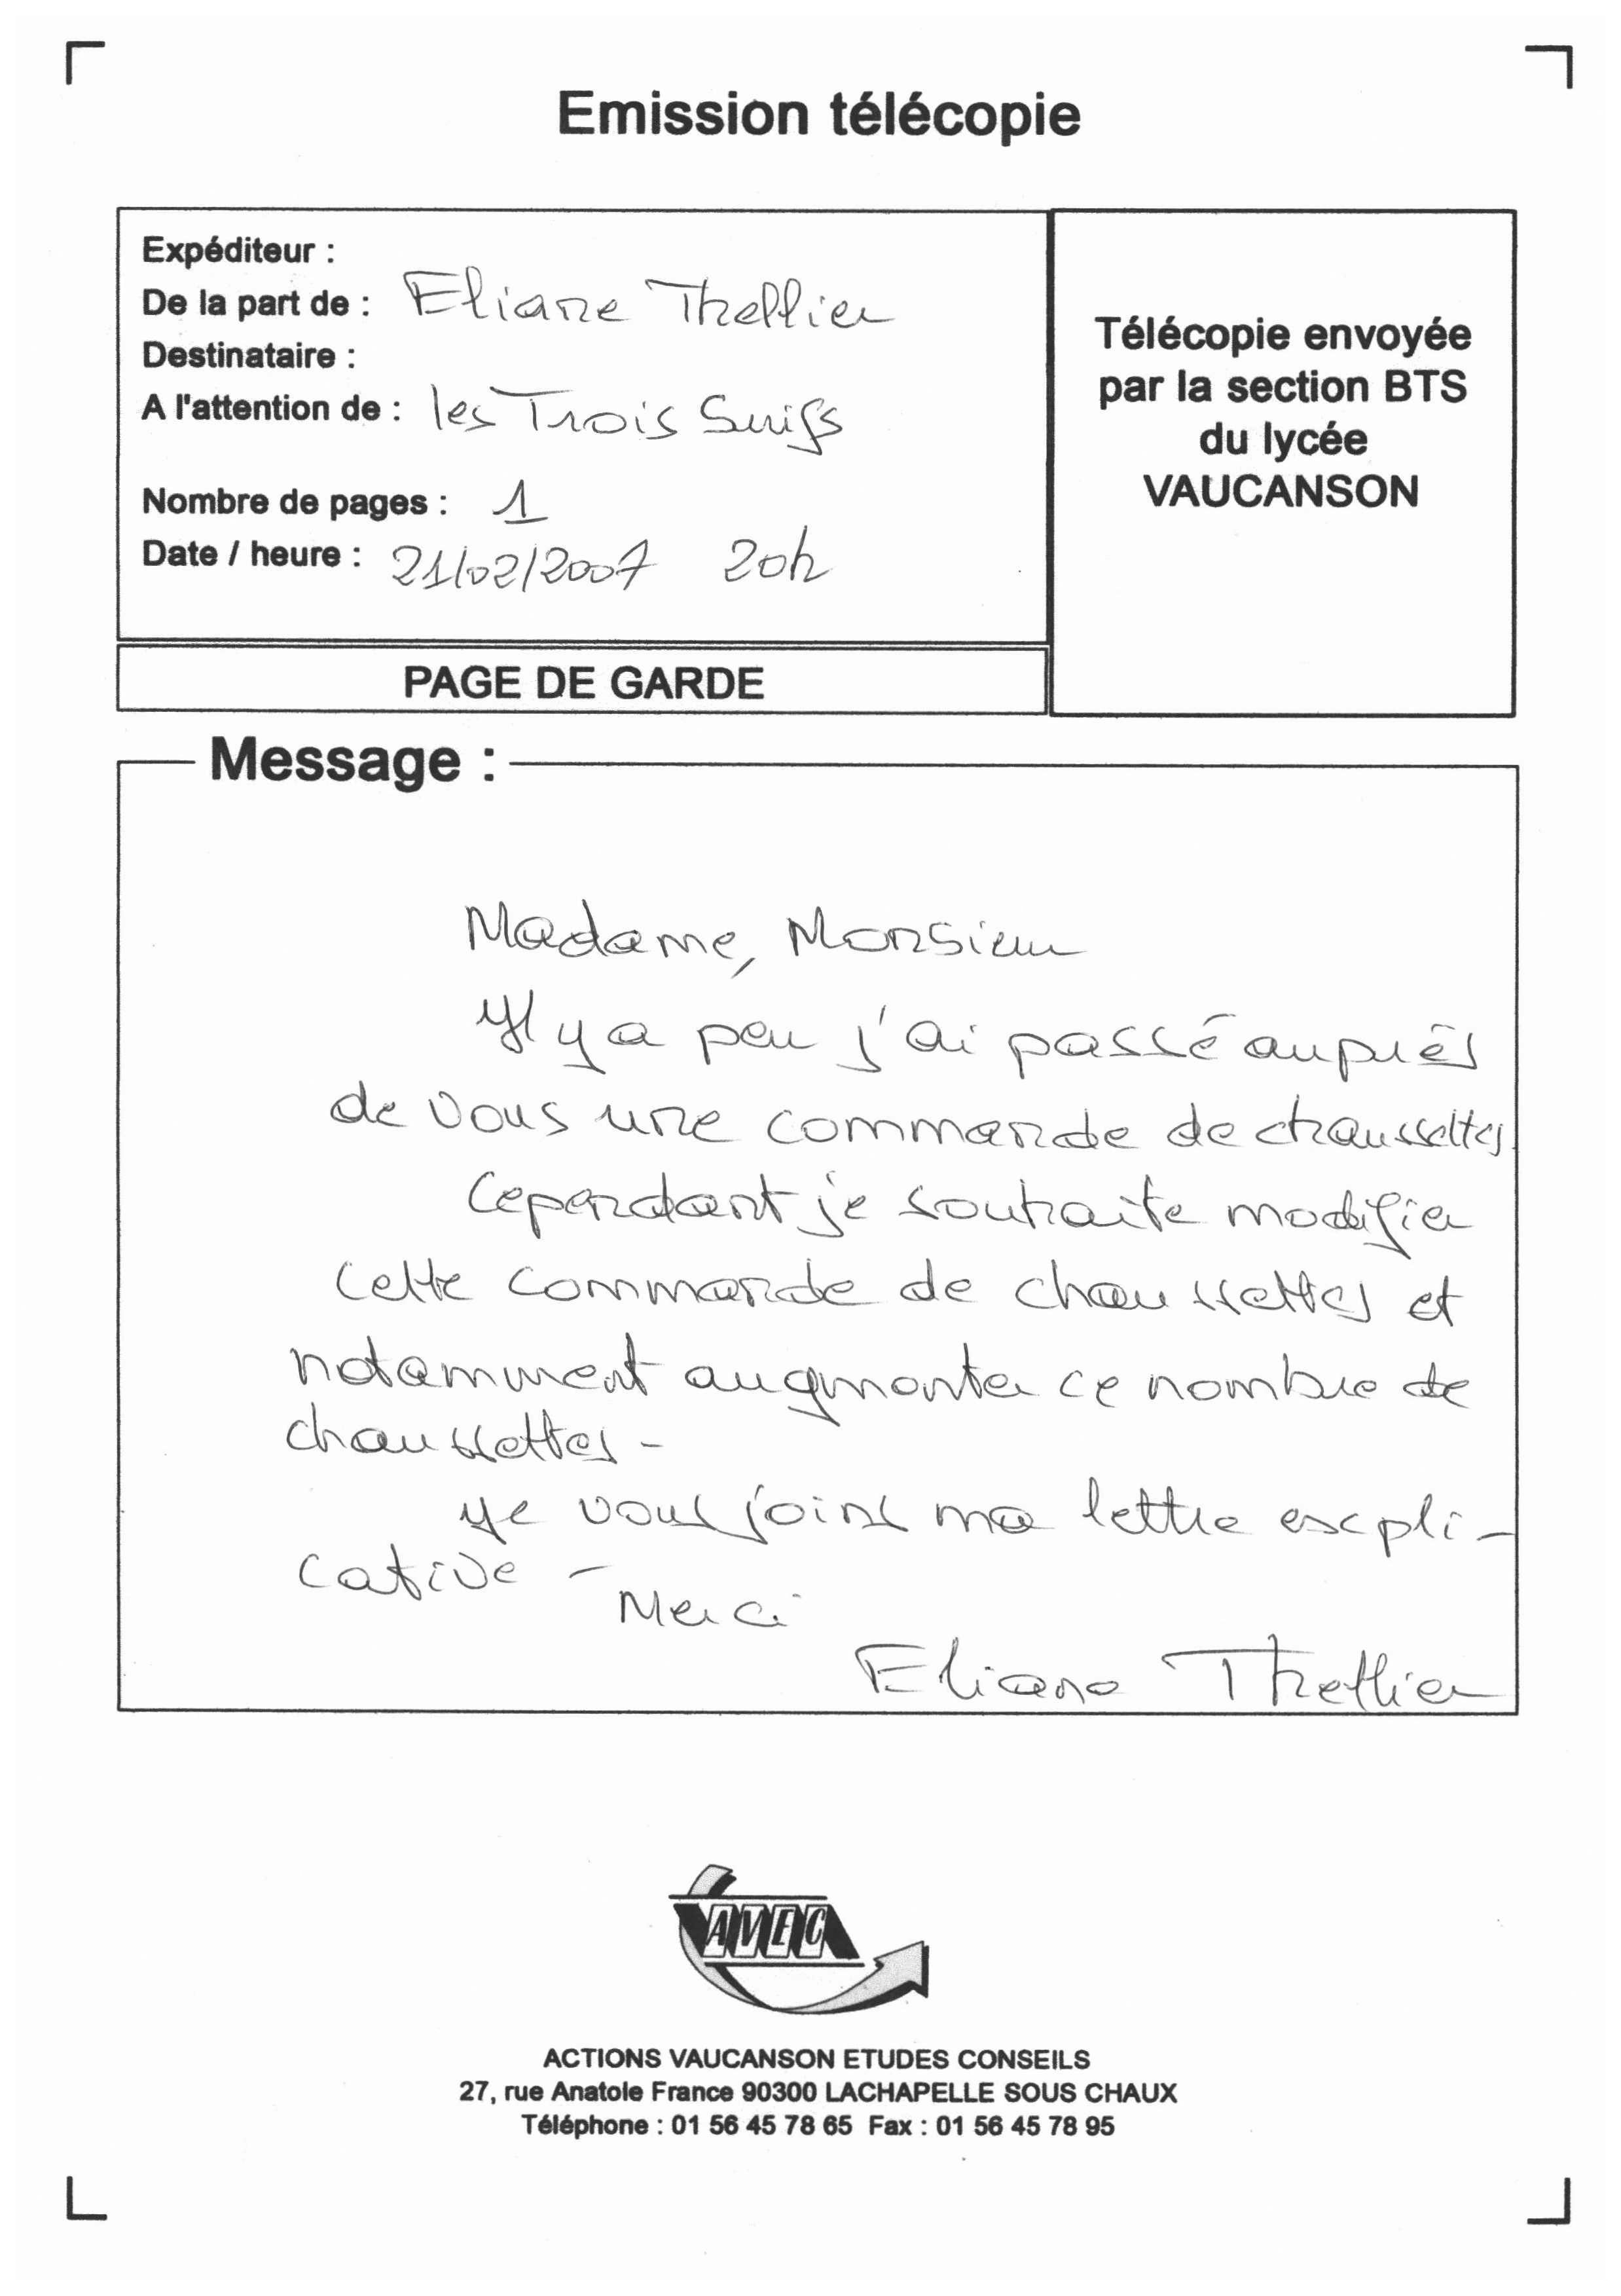 Emission télécopie
Expéditeur :
De la part de : Eliane Thellier
Destinataire :
A l'attention de : les Trois Suifs
Nombre de pages : 1
Date / heure : 21/02/2007 20h
Télécopie envoyée
par la section BTS
du lycée
VAUCANSON
PAGE DE GARDE
Message :
Madame, Monsieur
Il y a peu j'ai passé auprès
de vous une commande de chaussettes.
Cependant je souhaite modifier
cette commande de chaussettes et
notamment augmenter ce nombre de
chaussettes -
Je vous joins ma lettre expli-
cative -
Merci
Eliane Thellier
AVEC
ACTIONS VAUCANSON ETUDES CONSEILS
27, rue Anatole France 90300 LACHAPELLE SOUS CHAUX
Téléphone : 01 56 45 78 65 Fax : 01 56 45 78 95